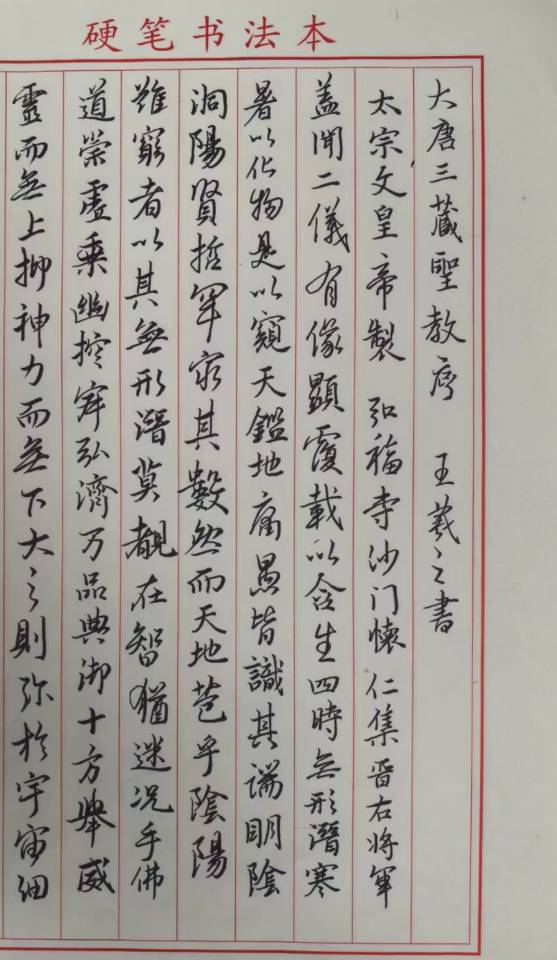 硬笔书法本
大唐三藏聖教序 王羲之書
太宗文皇帝製 弘福寺沙门懷仁集晋右将軍
盖闻二儀有像顯覆載以含生四時無形潛寒
暑以化物是以窺天鑑地庸愚皆識其端明陰
洞陽賢哲罕窮其數然而天地苞乎陰陽
雖窮者以其無形潛莫覩在智猶迷况乎佛
道崇虚乗幽控寂弘濟万品典御十方舉威
靈而無上抑神力而無下大之則弥於宇宙细